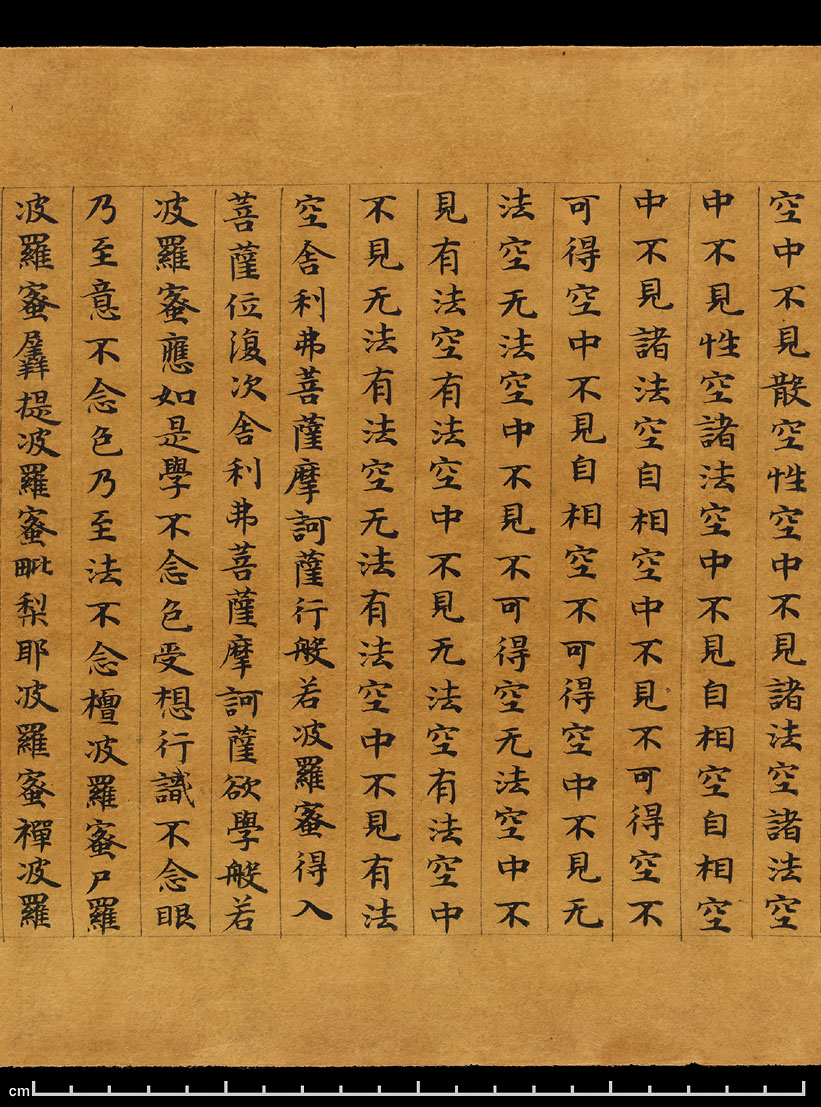 空中不見散空性空中不見諸法空諸法空
中不見性空諸法空中不見自相空自相空
中不見諸法空自相空中不見不可得空不
可得空中不見自相空不可得空中不見无
法空无法空中不見不可得空无法空中不
見有法空有法空中不見无法空有法空中
不見无法有法空无法有法空中不見有法
空舍利弗菩薩摩訶薩行般若波羅蜜得入
菩薩位復次舍利弗菩薩摩訶薩欲學般若
波羅蜜應如是學不念色受想行識不念眼
乃至意不念色乃至法不念檀波羅蜜尸羅
波羅蜜羼提波羅蜜毗梨耶波羅蜜禪波羅
cm